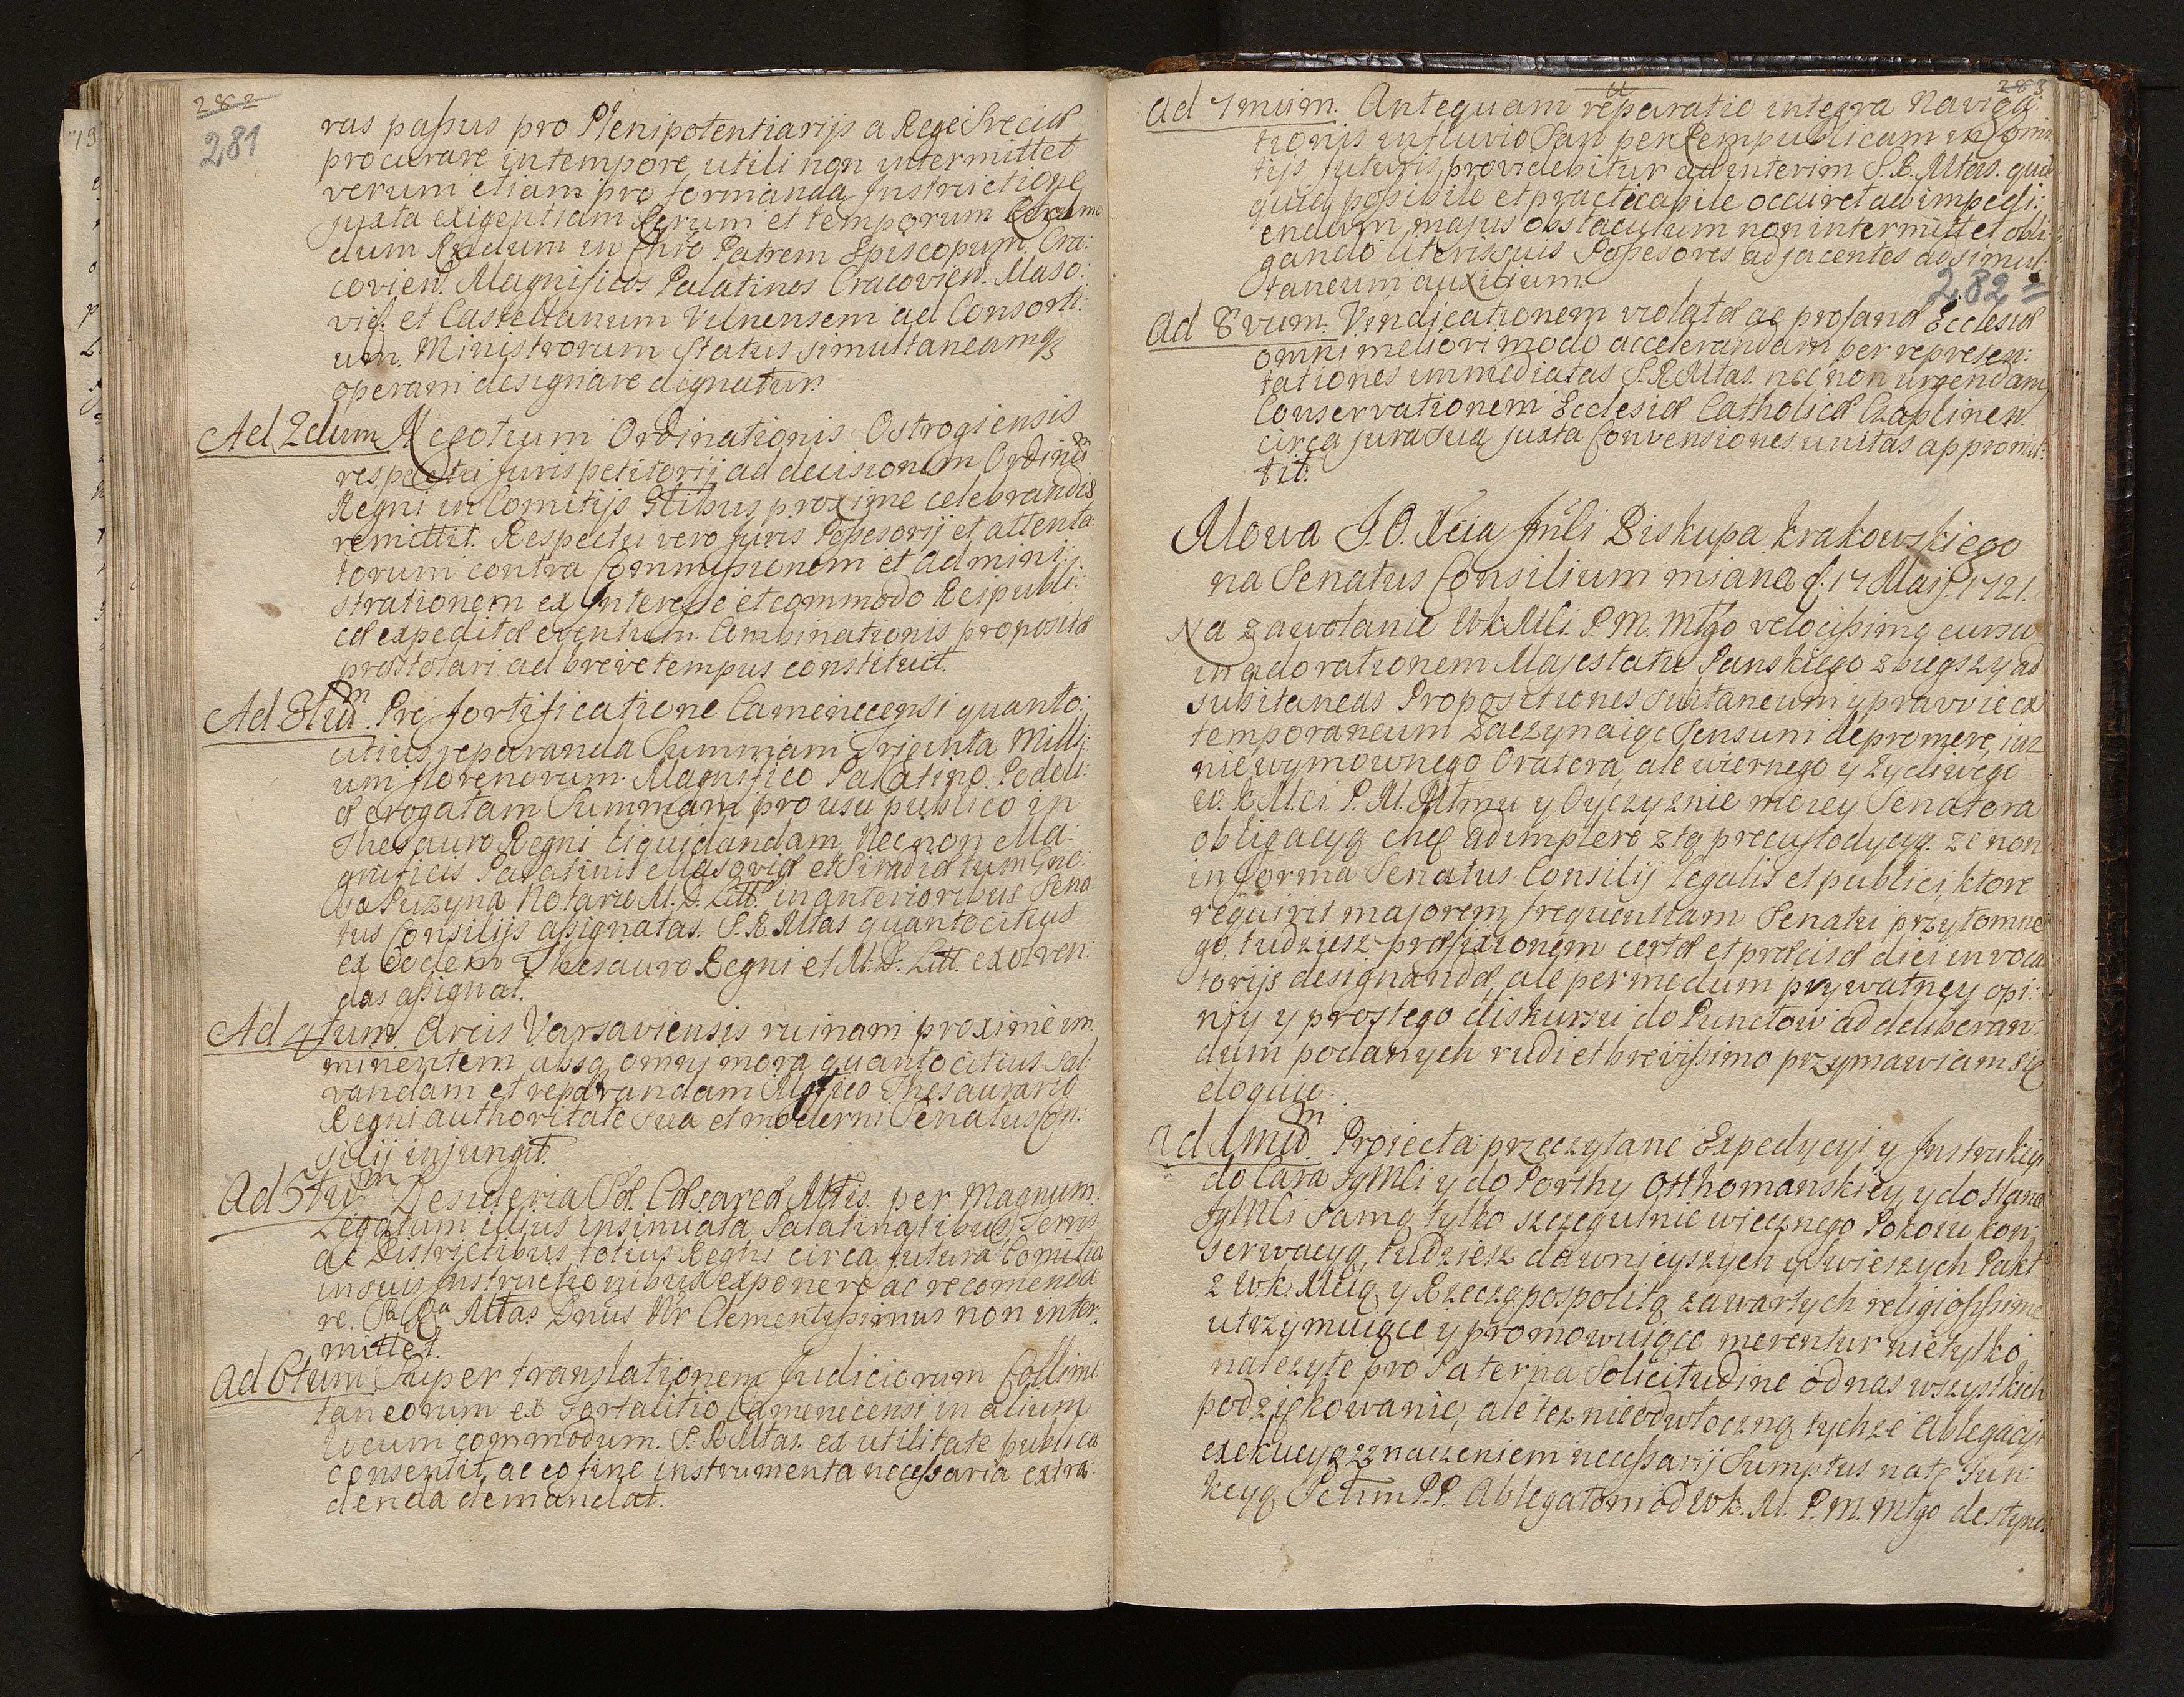 282
281
ras passus pro Plenipotentiarijs a Rege Sveciæ
procurare in tempore utili non intermittet
verum etiam pro formanda Instructione
juxta exigentiam Rerum et temporum
dum Rndum in Chro Patrem Episcopum Cra:
covien. Magnificos Palatinos Cracovien. Maso:
viæ. et Castellanum Vilnensem ad Consorti:
um Ministrorum Status simultaneamq3
operam designare dignatur.
Ad 2dum Negotium Ordinationis Ostrogiensis
respectu juris petitorij ad decisionem Ordinu
Regni in Comitijs 3tibus proxime celebrandis
remittit. Respectu vero Juris Possesorij et attenta:
torum contra Commissionem et admini:
strationem ex Interesse et commodo Reipubli:
cæ expeditæ eventum. Combinationis propositæ
præstolari ad breve tempus constituit.
Ad 3tium Pro fortificatione Camenecensi quanto:
citius reparanda Summam Triginta Milli:
um florenorum. Magnifico Palatino Podoli:
æ erogatam Summam pro usu publico in
Thesauro Regni liquidandam Nec non Ma:
gnificis Palatinis Masoviæ et Siradiæ tum Gno:
so Puzyna Notario M. D. Litt. in anterioribus Sena:
tus Consilijs assignatas. S. R. Mtas quantocitius
ex eodem Thesauro Regni et M: D: Litt. exolven:
das assignat.
Ad 4tum Arcis Varsaviensis ruinam proxime im:
minentem absq omni mora quantocitius sal:
vandam et reparandam Mgfico Thesaurario
Regni authoritate sua et moderni Senatus Con:
silij injungit.
Ad 5tum Desideria Sæ Cæsareæ Mtis. per Magnum
Legatum illius insinuata Palatinatibus Terris
ac Districtibus totius Regni circa futura Comitia
in suis Instructionibus exponere ac recomenda:
re. Sa Ra Mtas Dnus Nr Clementissimus non inter:
mittet.
Ad 6tum Super translationem Judiciorum Collimi:
taneorum ex Fortalitio Camenecensi in alium
locum commodum. S. R Mtas. ex utilitate publica
consentit, ac eo fine instrumenta necessaria extra:
denda demandat.
283
Ad 7mum. Antequam reparatio integra Naviga:
tionis in fluvio San per Rempublicam in Comi:
tijs futuris providebitur ad interim S. R. Mtas. quid
quid possibile et practicabile occuret ad impedi:
endum majus obstaculum non intermittet obli:
gando literis suis Possesores adjacentes ad simul:
taneum auxilium.
282
Ad 8vum. Vindicationem violatæ ac profanæ Ecclesiæ
omni meliori modo accelerandam per represen:
tationes immediatas S. R Mtas. nec non urgendam
Conservationem Ecclesiæ Catholicæ Czaplinen.
circa jura sua juxta Conventiones unitas appromit:
tit.
Mowa J. O. Xcia Jmci Biskupa Krakowskiego
na Senatus Consilium miana d. 17 Maij. 1721.
Na zawołanie WkMci. P. M. Mgo velocissimo cursu
in adorationem Majestatu Panskiego zbiegszy ad
subitaneas Propositiones subitaneum y prawie ex
temporaneum zaczynaiąc Sensum depromere, iuz
nie wymownego Oratora, ale wiernego y zyczliwego
W. K Mci P. M. Mmu y Oyczyznie moiey Senatora
obligacyą chcę adimplere z tą precustodycyą ze non
in forma Senatus Consilij legalis et publici, ktore
requirit majorem frequentiam Senatu przytomne:
go, tudziesz præfixionem certæ et præcisæ diei in voca
torijs designandæ, ale per modum prywatney opi:
nij y prostego diskursu do Punctow ad deliberan:
dum podanych rudi et brevissimo przymawiam się
eloquio.
Ad 1mum. Proiecta przeczytane Expedycyi y Instrukcyi
do Cara JgMci y do Porthy Otthomanskiey, y do Hana
JgMci samą tylko szczegulnie wiecznego Pokoiu kon:
serwacyą, tudziesz dawnieyszych y swieszych Pakt
z W. k. Mcią y Rzecząpospolitą zawartych religiosissime
utrzymuiące y promowuiące merentur nie tylko
nalezyte pro Paterna Solicitudine od nas wszystkich
podziękowanie, ale tez nieodwłoczną tychze Ablegacyi
exekucyą z znaczeniem necessarij Sumptus na tę fun:
kcyą Ichm P.P. Ablegatom od Wk. M. P. M. Mgo destyno